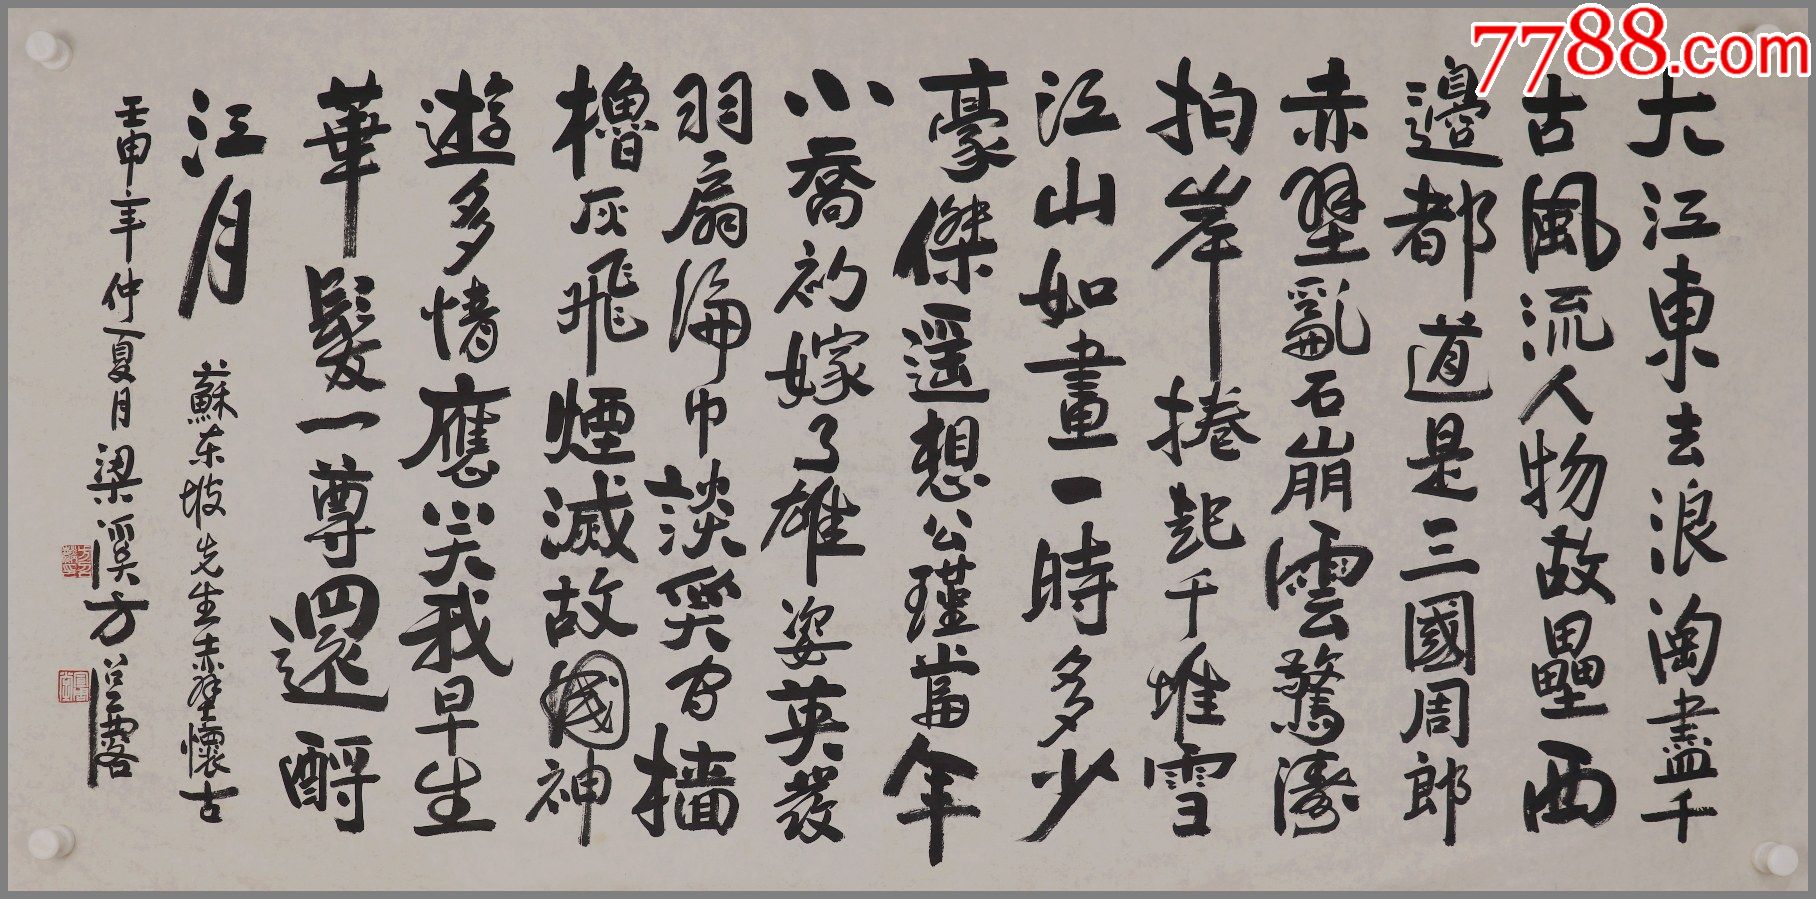 7788.com
大江東去浪淘盡千
古風流人物故壘西
邊都道是三國周郎
赤壁亂石崩雲驚濤
拍岸捲起千堆雪
江山如畫一時多少
豪傑遥想公瑾當年
小喬初嫁了雄姿英發
羽扇綸巾談笑間檣
櫓灰飛煙滅故國神
遊多情應笑我早生
華髮一尊還酹
江月
蘇东坡先生赤壁懷古
壬申年仲夏月梁溪方召麐